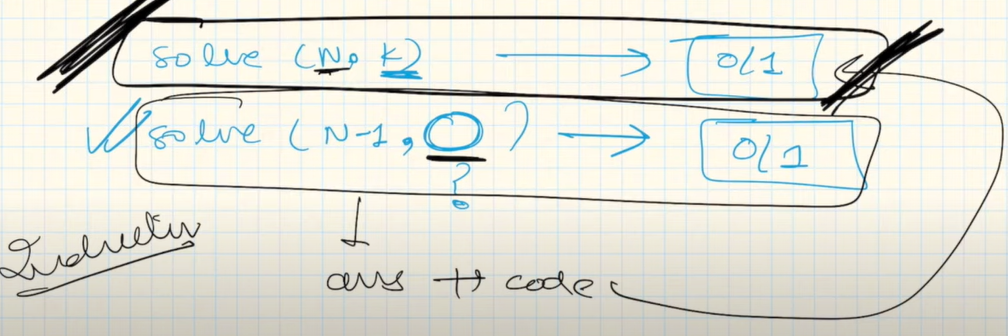 solve (N, k) → 0/1
solve (N-1, ) → 0/1
?
Inductive
ans + code